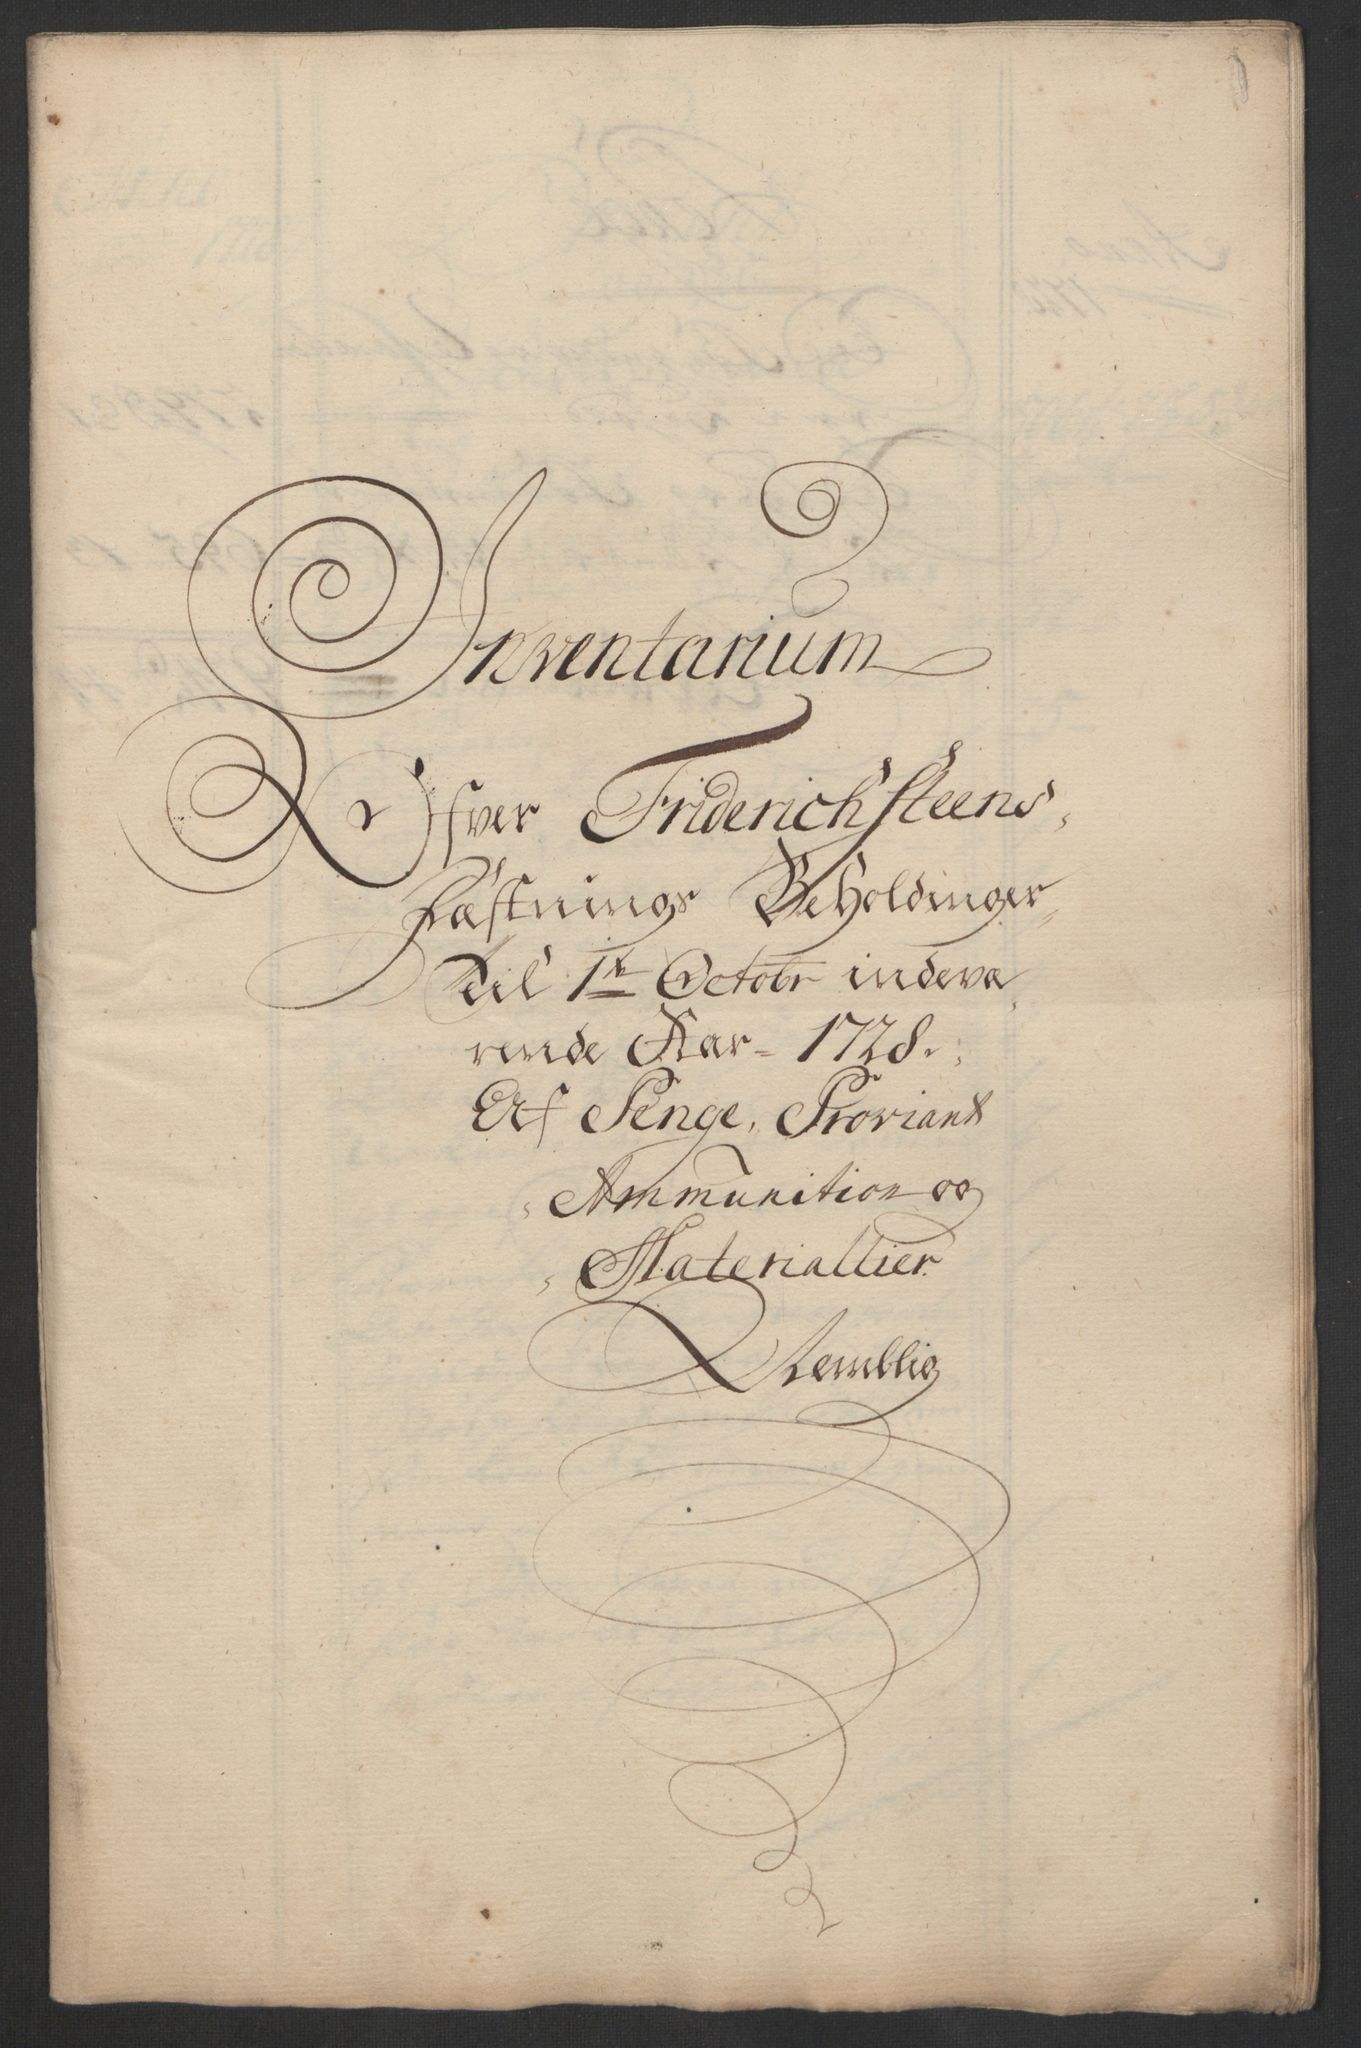 Inventarium
Ofver Friderichsteens
Fæstnings Beholdinger
Til 1te Octobr indevæ
rende Aar 1728.
Af Penge, Proviant
Ammunition og
Materiallier
Nemblig